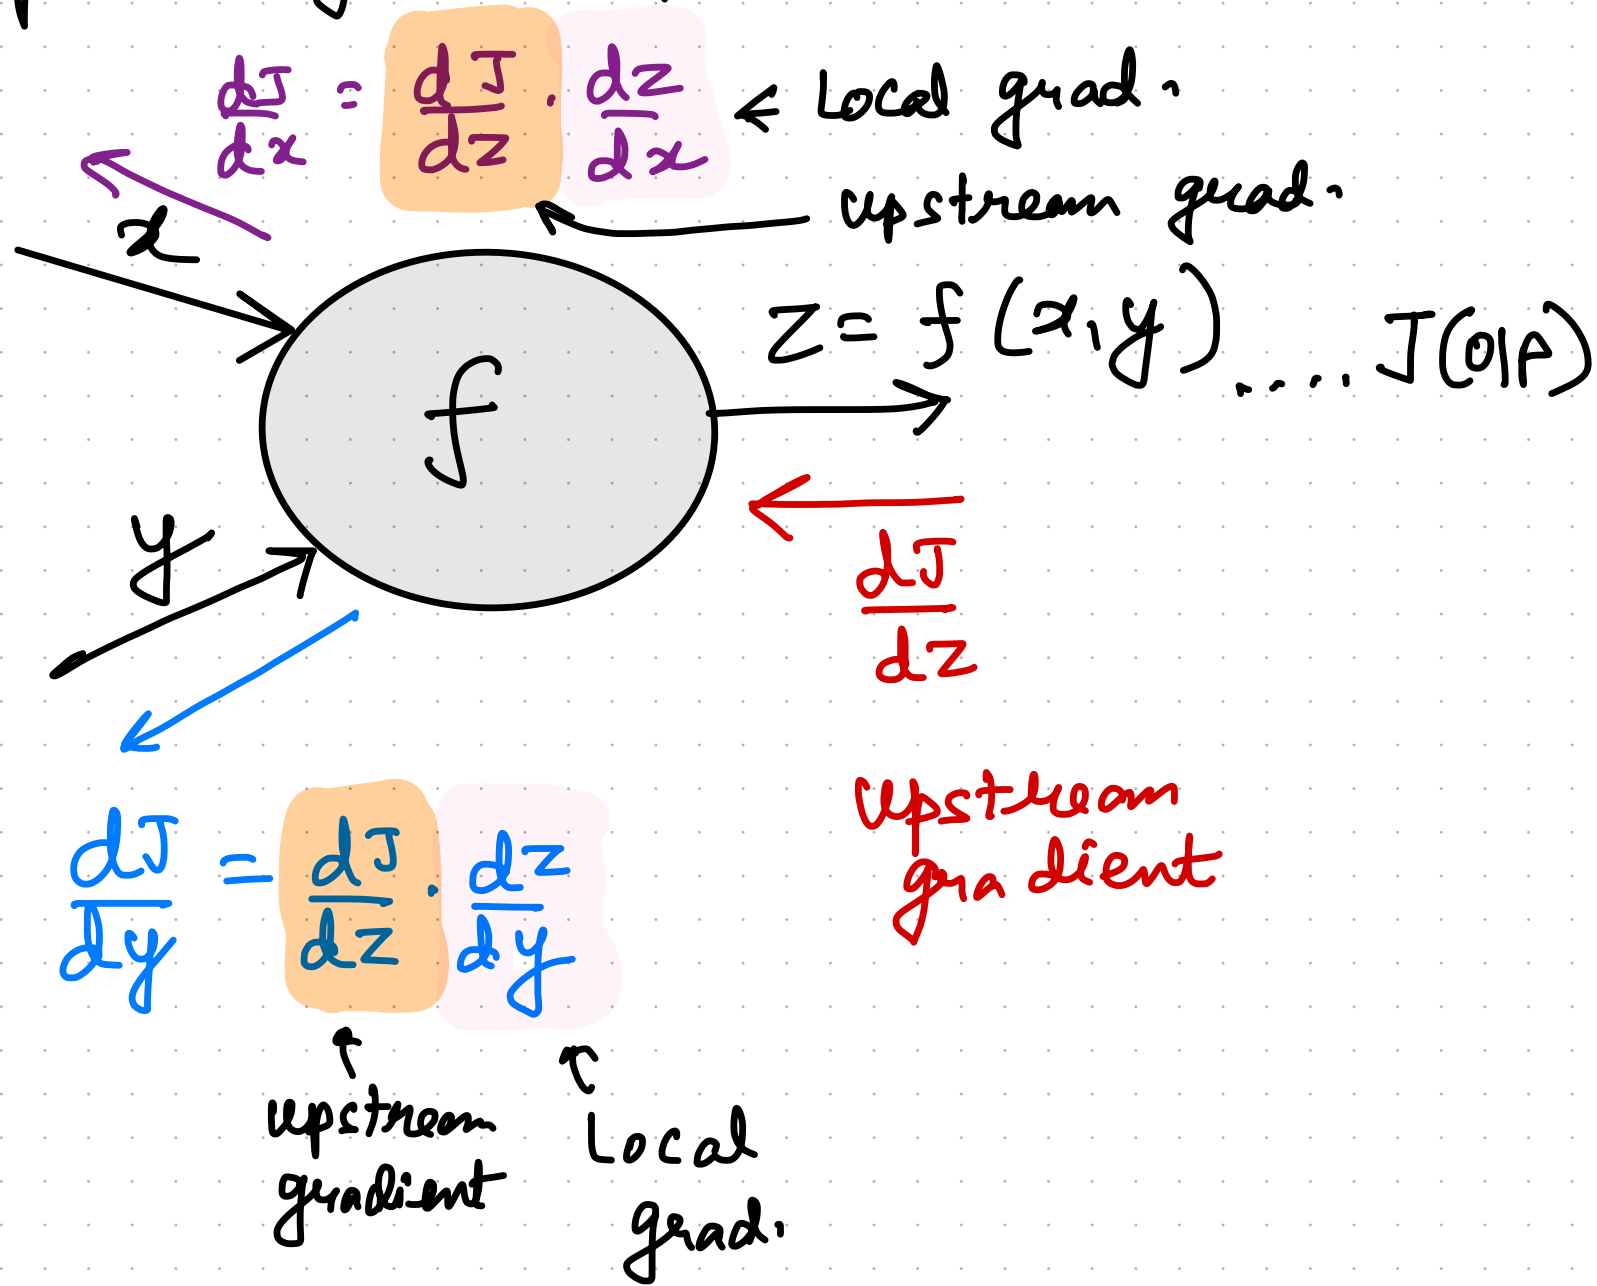 dJ/dx = dJ/dz · dz/dx ← Local grad.
upstream grad.
x
z = f(x,y) .... J(O/P)
f
y
dJ/dz
upstream
gradient
dJ/dy = dJ/dz · dz/dy
upstream
gradient
Local
grad.